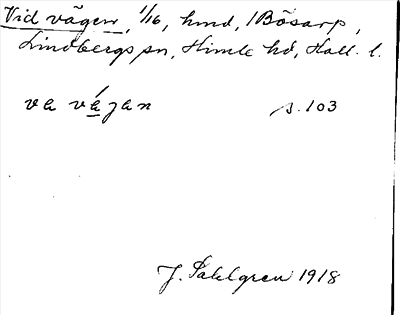 Vid vägen, 1/16, hmd, Bösarp,
Lindbergs sn, Himle hd, Hall. l.
va vá̱jan s. 103
J. Sahlgren 1918